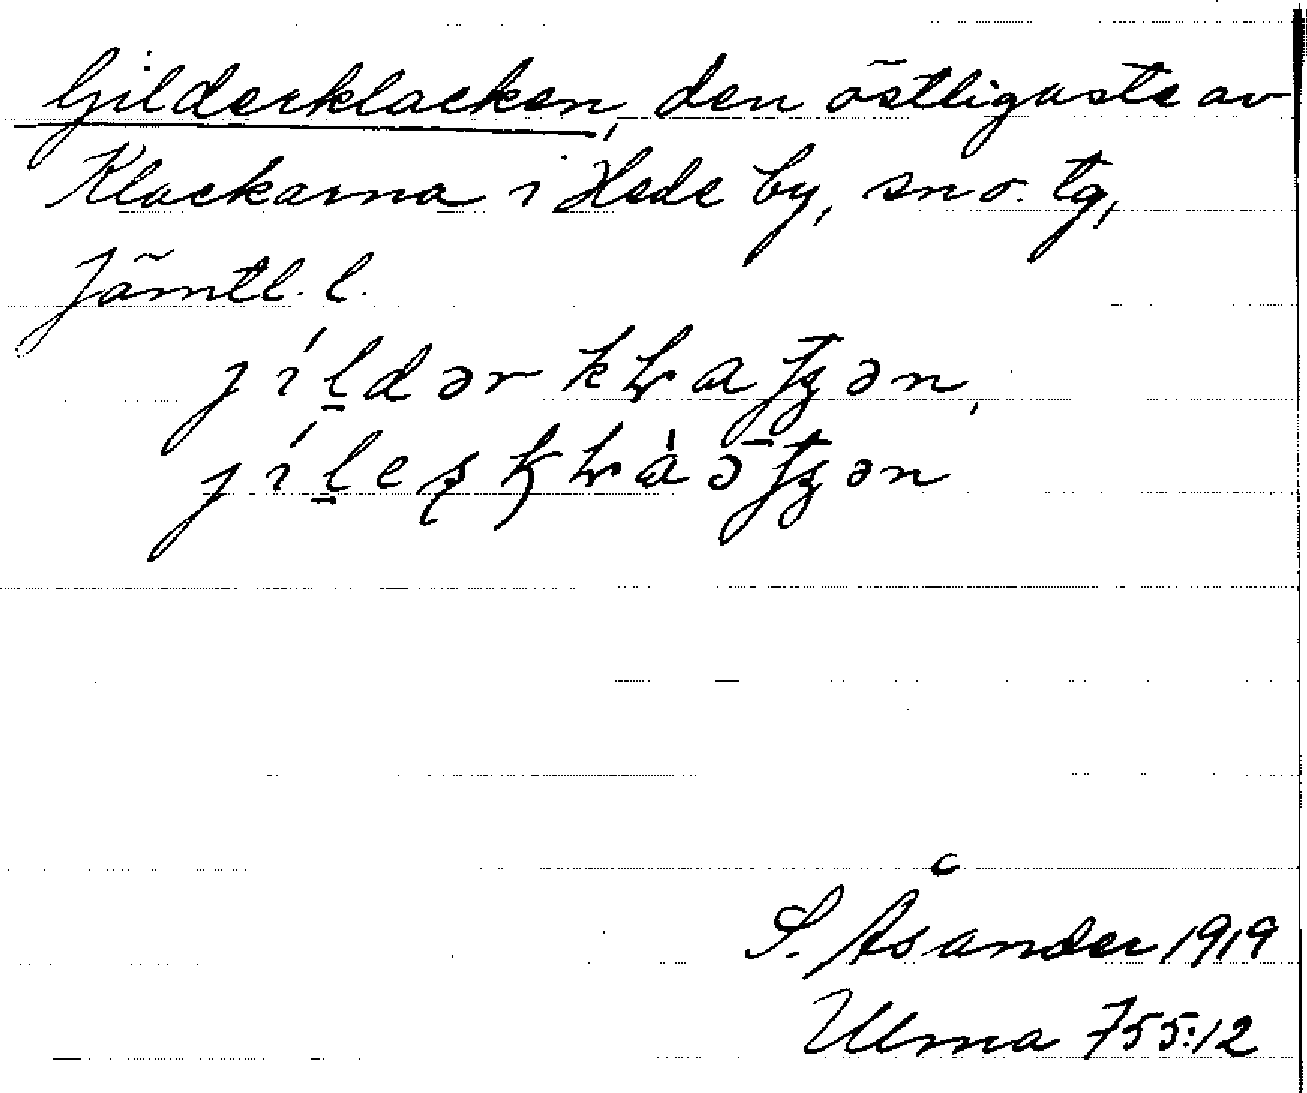 Gilderklacken, den östligaste av
Klackarna i Hede by, sn o. tg,
Jämtl. l.
S. Åsander 1919
Ulma 755:12